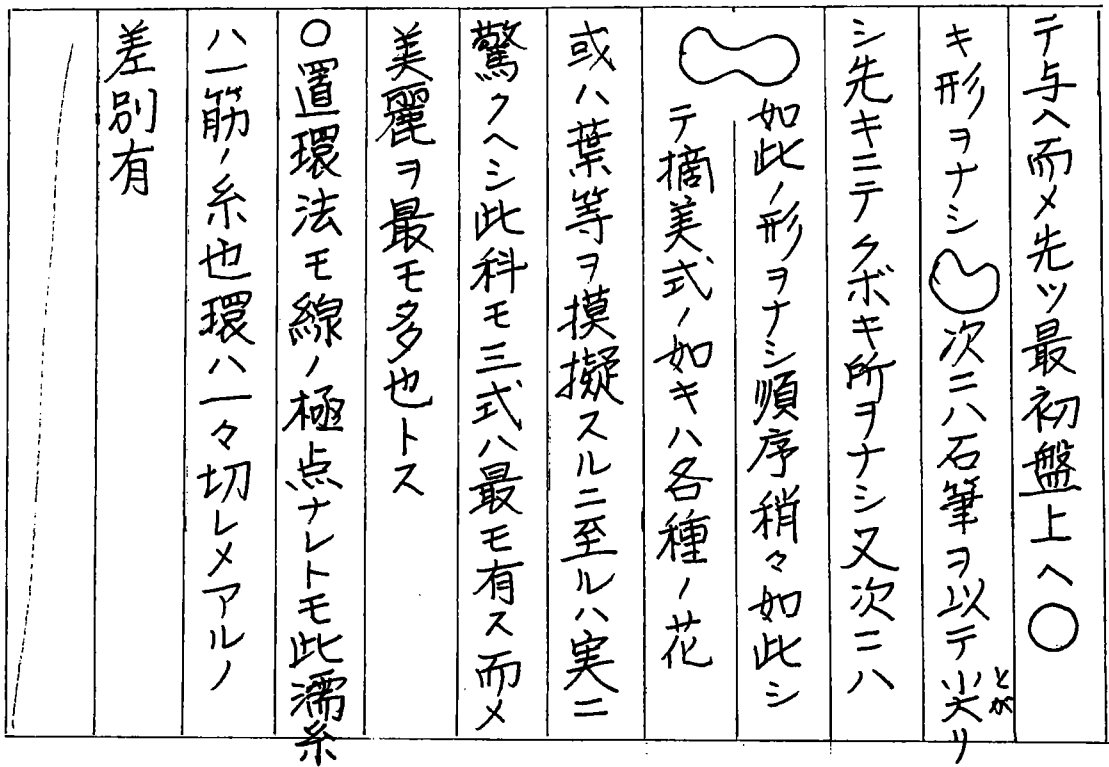 テ与ヘ而メ先ツ最初盤上ヘ○
キ形ヲナシ 次ニハ石筆ヲ以テ尖リ
とが
シ先キニテクボキ所ヲナシ又次ニハ
如此ノ形ヲナシ順序稍々如此シ
テ摘美式ノ如キハ各種ノ花
或ハ葉等ヲ摸擬スルニ至ルハ実ニ
驚クヘシ此科モ三式ハ最モ有ス而メ
美麗ヲ最モ多也トス
○置環法モ線ノ極点ナレトモ此濡糸
ハ一筋ノ糸也環ハ一々切レメアルノ
差別有